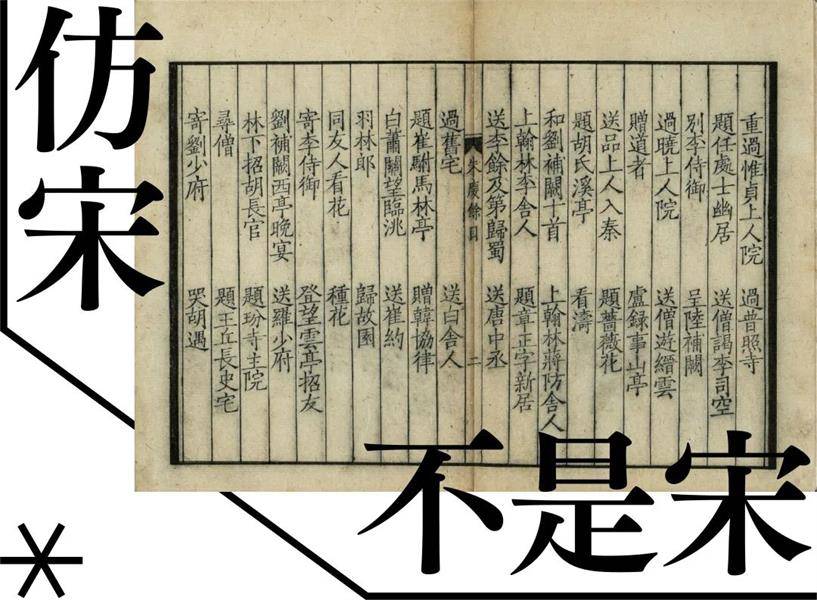 仿宋
重過惟貞上人院 過普照寺
題任處士幽居 送僧謁李司空
別李侍御 呈陸補闕
過曉上人院 送僧遊縉雲
贈道者 盧錄事山亭
送品上人入秦 題薔薇花
題胡氏溪亭 看濤
和劉補闕十首 上翰林蔣防舍人
上翰林李舍人 題章正字新居
送李餘及第歸蜀 送唐中丞
朱慶餘目 二
過舊宅 送白舍人
題崔駙馬林亭 贈韓協律
自蕭關望臨洮 送崔約
羽林郎 歸故園
同友人看花 種花
寄李侍御 登望雲亭招友
劉補闕西亭晚宴 送羅少府
林下招胡長官 題玢寺主院
尋僧 題王丘長史宅
寄劉少府 哭胡遇
不是宋